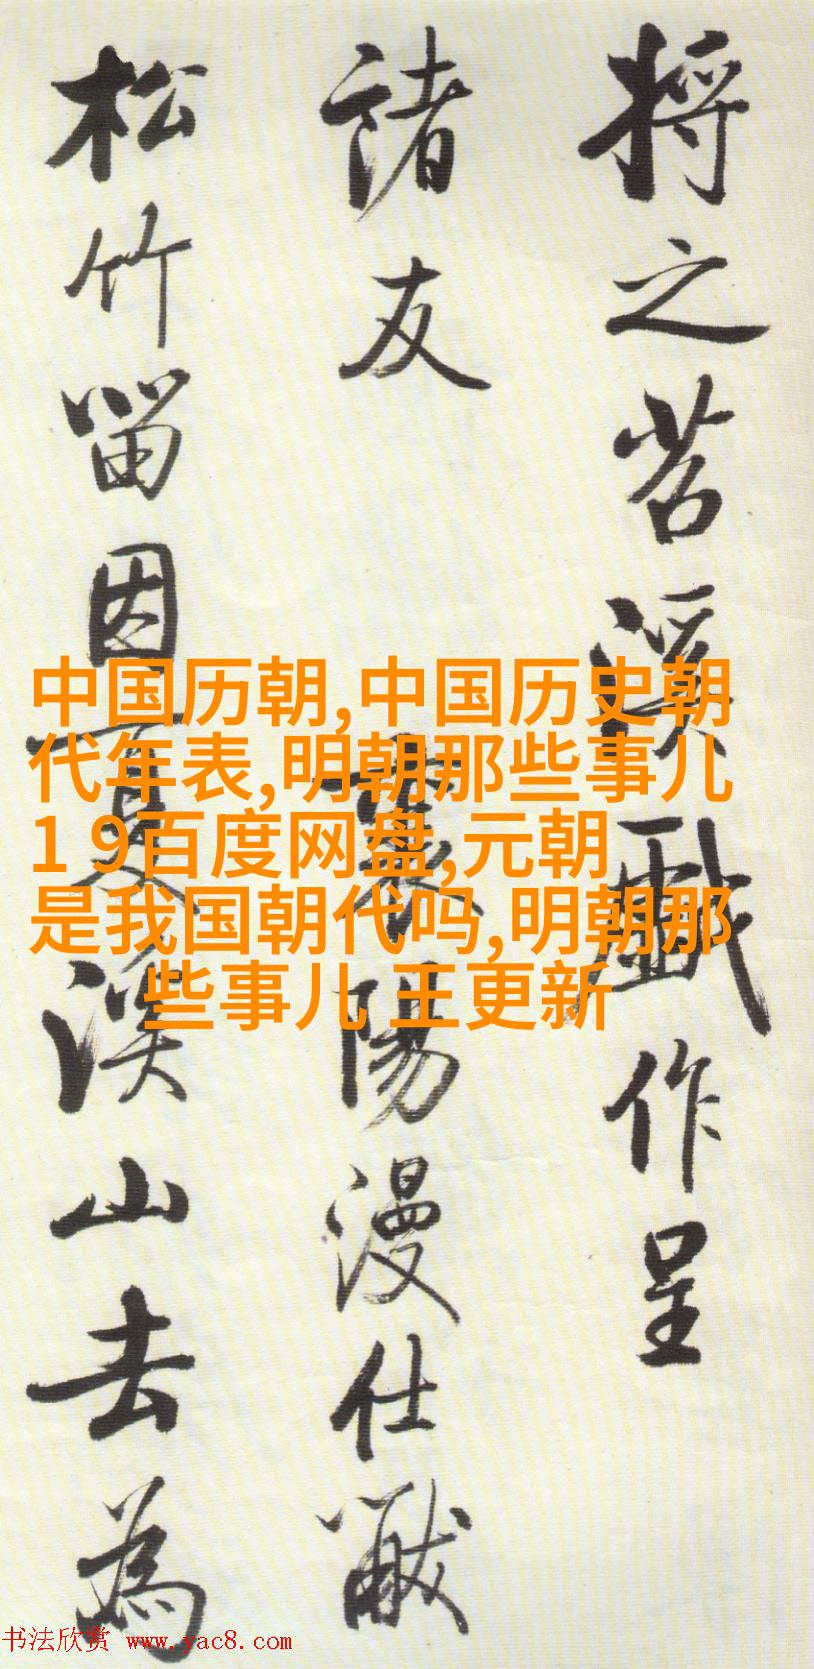 将之苕溪戲作呈
諸友
襄陽漫仕黻
松竹留因夏溪山去為
中国历朝,中国历史朝
代年表,明朝那些事儿
1 9百度网盘,元朝
是我国朝代吗,明朝那
些事儿 王更新
书法欣赏 www.yac8.com